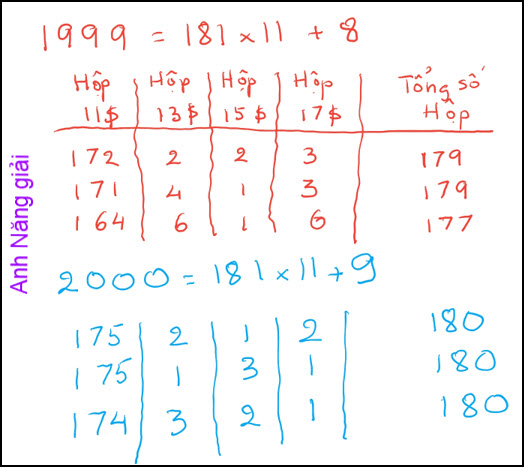 1999 = 181 x 11 + 8
Hộp 11$ Hộp 13$ Hộp 15$ Hộp 17$ Tổng số Hộp
172 2 2 3 179
171 4 1 3 179
164 6 1 6 177
Anh Năng giải
2000 = 181 x 11 + 9
175 2 1 2 180
175 1 3 1 180
174 3 2 1 180